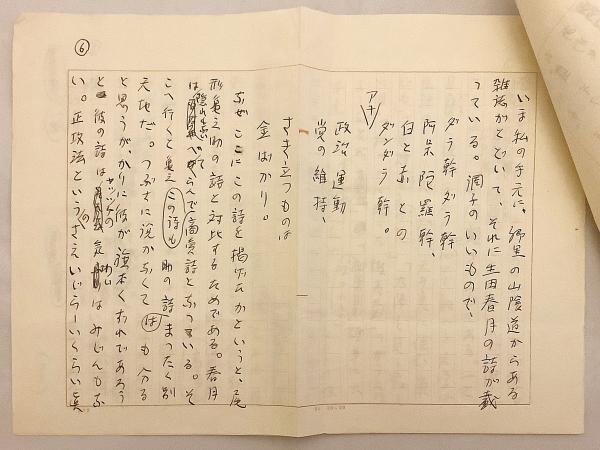 ⑥
いま私の手元に、郷里の山陰道からある
雑誌がとどいて、それに生田春月の詩が載
っている。調子のいいもので、
ダラ幹ダラ幹
阿呆陀羅幹、
白と赤との
ダンダラ幹。
アキ
政治運動
党の維持、
さき立つものは
金ばかり。
なぜここにこの詩を掲げたかというと、尾
形亀之助の詩と対比するためである。春月
は べらんで商売詩となっている。そ
こへ行くと亀之助の詩まったく別
この詩も
天地だ。つぶさに説かなくても分る
は
と思うが、かりに彼が旗本くずれであろう
と彼の詩は ヤッツケの はみじんもな
い。正攻法というのさえいじらしいくらい真